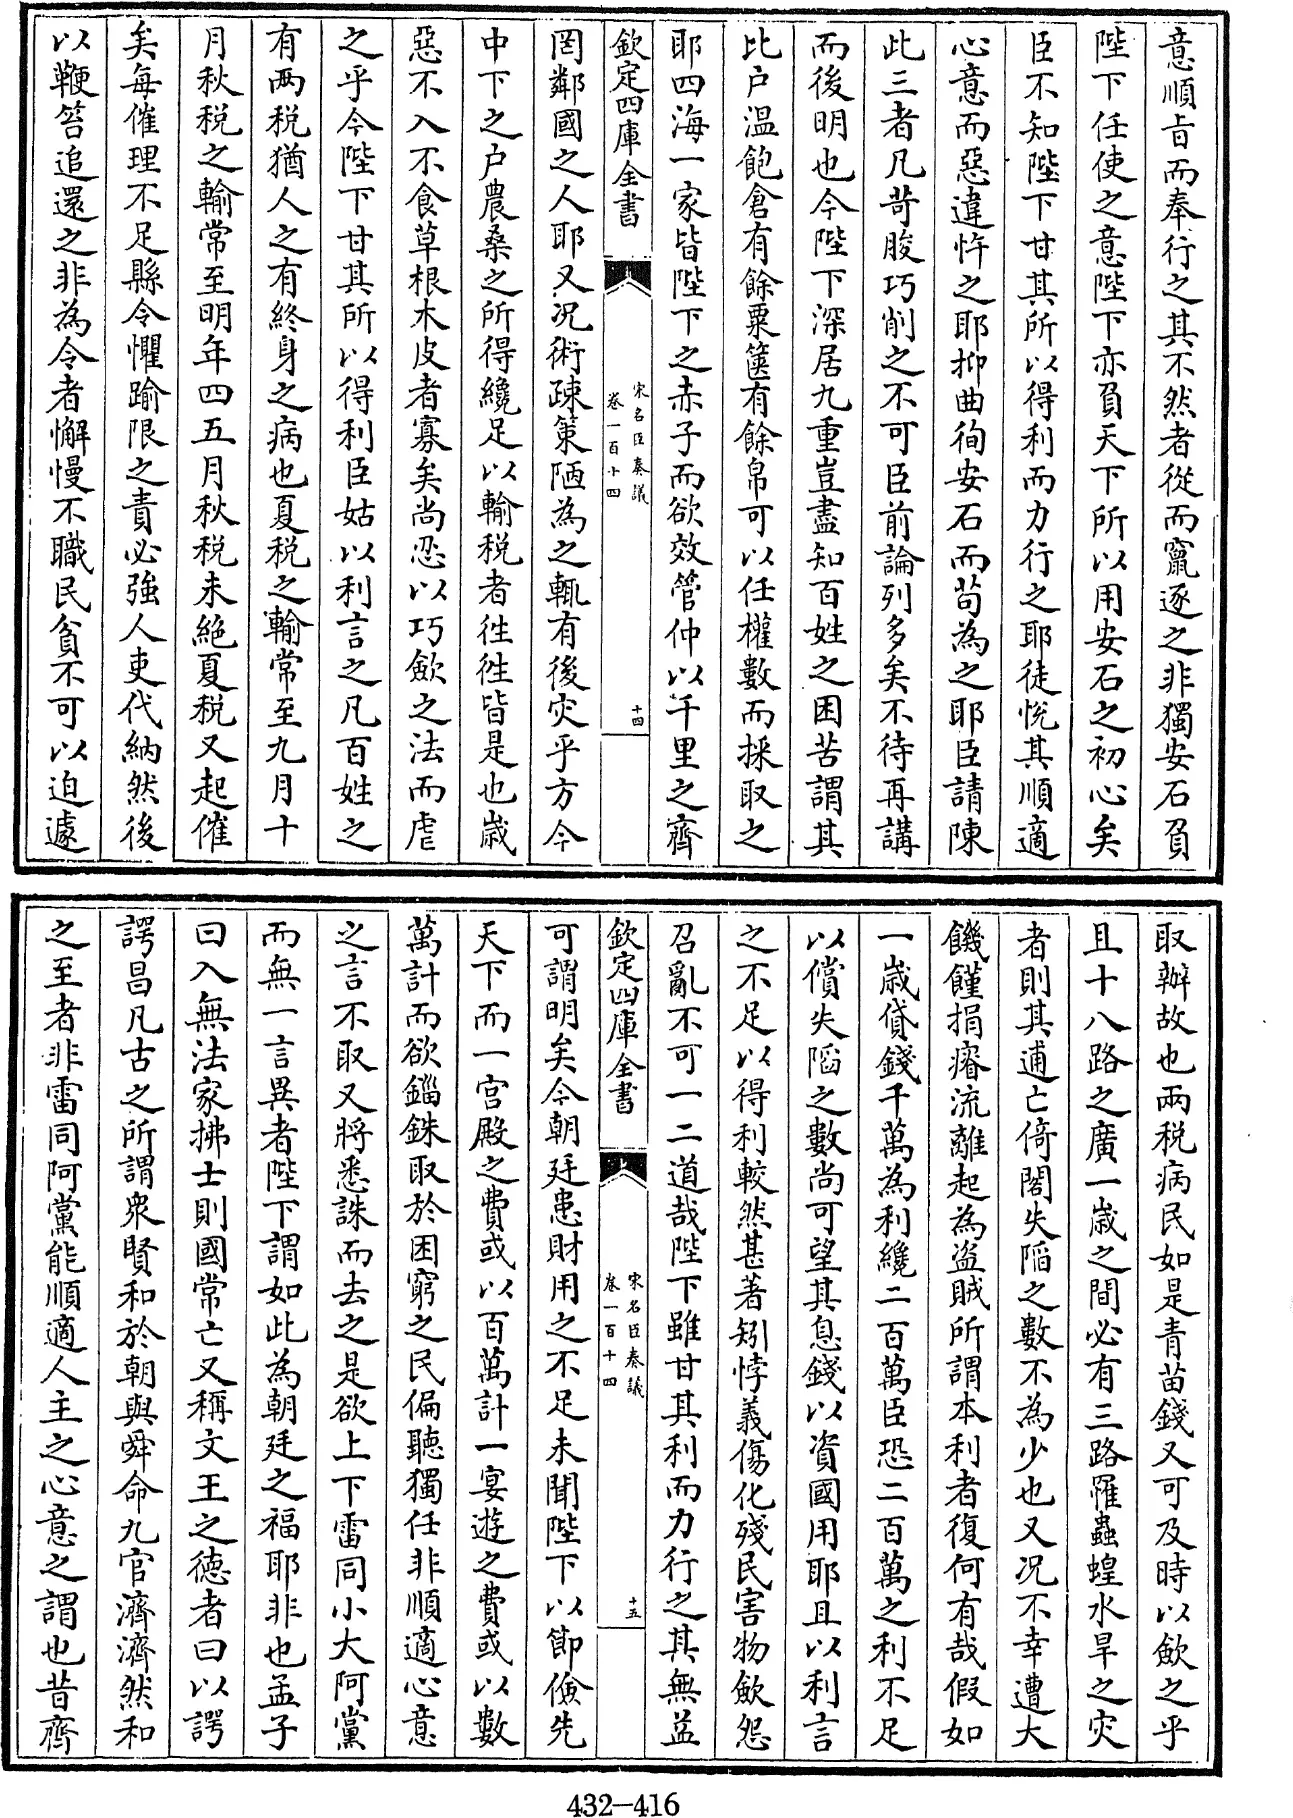 意順㫖而奉行之其不然者從而竄逐之非獨安石負
陛下任使之意陛下亦負天下所以用安石之初心矣
臣不知陛下甘其所以得利而力行之耶徒悦其順適
心意而惡違忤之耶抑曲徇安石而茍為之耶臣請陳
此三者凡苛朘巧削之不可臣前論列多矣不待再講
而後明也今陛下深居九重豈盡知百姓之困苦謂其
比户温飽倉有餘粟篋有餘帛可以任權數而採取之
耶四海一家皆陛下之赤子而欲效管仲以千里之齊
欽定四庫全書
宋名臣奏議
卷一百十四
十四
罔鄰國之人耶又况術疎策陋為之輒有後灾乎方今
中下之户農桑之所得纔足以輸税者徃徃皆是也歳
惡不入不食草根木皮者寡矣尚忍以巧歛之法而虐
之乎今陛下甘其所以得利臣姑以利言之凡百姓之
有兩税猶人之有終身之病也夏税之輸常至九月十
月秋税之輸常至明年四五月秋税未絶夏税又起催
矣每催理不足縣令懼踰限之責必強人吏代納然後
以鞭笞追還之非為令者懈慢不職民貧不可以迫遽
取辦故也兩税病民如是青苗錢又可及時以歛之乎
且十八路之廣一歳之間必有三路罹蟲蝗水旱之灾
者則其逋亡倚閣失陷之數不為少也又况不幸遭大
饑饉捐瘠流離起為盗賊所謂本利者復何有哉假如
一歳貸錢千萬為利纔二百萬臣恐二百萬之利不足
以償失陷之數尚可望其息錢以資國用耶且以利言
之不足以得利較然甚著矧悖義傷化殘民害物歛怨
召亂不可一二道哉陛下雖甘其利而力行之其無益
欽定四庫全書
宋名臣奏議
卷一百十四
十五
可謂明矣今朝廷患財用之不足未聞陛下以節儉先
天下而一宫殿之費或以百萬計一宴遊之費或以數
萬計而欲錙銖取於困窮之民偏聽獨任非順適心意
之言不取又將悉誅而去之是欲上下雷同小大阿黨
而無一言異者陛下謂如此為朝廷之福耶非也孟子
曰入無法家拂士則國常亡又稱文王之德者曰以諤
諤昌凡古之所謂衆賢和於朝與舜命九官濟濟然和
之至者非雷同阿黨能順適人主之心意之謂也昔齊
432—416